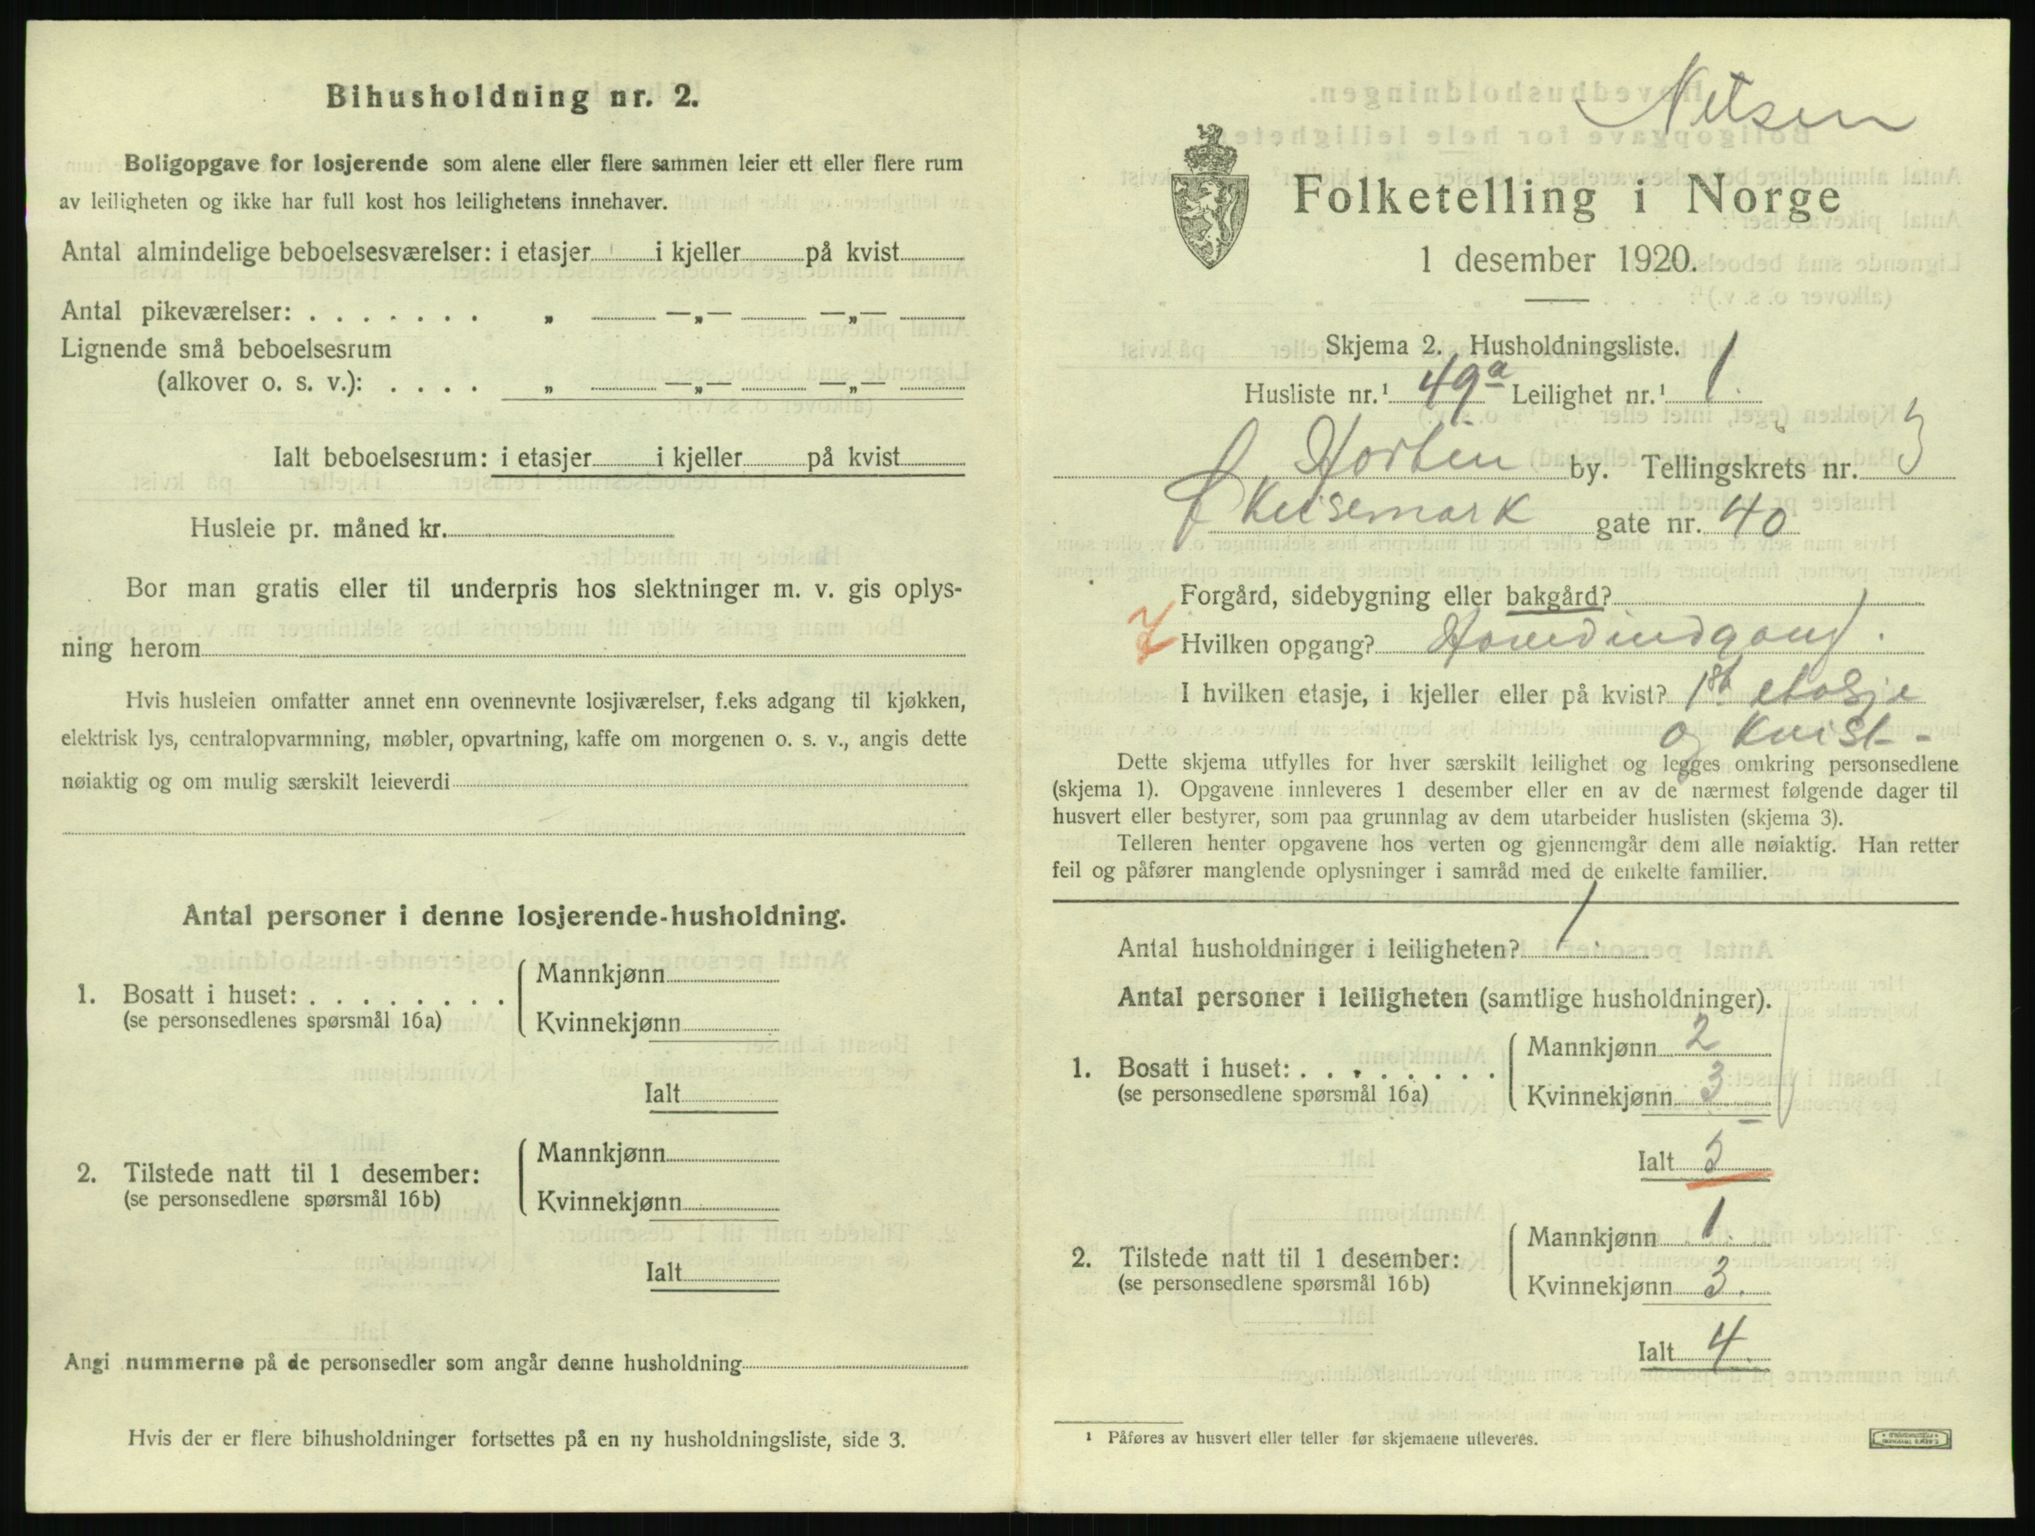 Bihusholdning nr. 2.
Boligopgave for losjerende som alene eller flere sammen leier ett eller flere rum
av leiligheten og ikke har full kost hos leilighetens innehaver.
Antal almindelige beboelsesværelser: i etasjer i kjeller på kvist
Antal pikeværelser: . . . . . . . „ —„— —„—
Lignende små beboelsesrum
(alkover o. s. v.): . . . . „ —„— —„—
Ialt beboelsesrum: i etasjer i kjeller på kvist
Husleie pr. måned kr.
Bor man gratis eller til underpris hos slektninger m. v. gis oplys-
ning herom
Hvis husleien omfatter annet enn ovennevnte losjiværelser, f.eks adgang til kjøkken,
elektrisk lys, centralopvarmning, møbler, opvartning, kaffe om morgenen o. s. v., angis dette
nøiaktig og om mulig særskilt leieverdi
Antal personer i denne losjerende-husholdning.
1. Bosatt i huset: . . . . . . . .
(se personsedlenes spørsmål 16a)
Mannkjønn
Kvinnekjønn
Ialt
2. Tilstede natt til 1 desember:
(se personsedlene spørsmål 16b)
Mannkjønn
Kvinnekjønn
Ialt
Angi nummerne på de personsedler som angår denne husholdning
Hvis der er flere bihusholdninger fortsettes på en ny husholdningsliste, side 3.
Nilsen
Folketelling i Norge
1 desember 1920.
Skjema 2. Husholdningsliste.
Husliste nr.¹ 49a Leilighet nr.¹ 1.
Horten by. Tellingskrets nr. 3
Keisemark gate nr. 40
Forgård, sidebygning eller bakgård?
Hvilken opgang? Hovedindgang.
I hvilken etasje, i kjeller eller på kvist? 1st etasje
og kvist-
Dette skjema utfylles for hver særskilt leilighet og legges omkring personsedlene
(skjema 1). Opgavene innleveres 1 desember eller en av de nærmest følgende dager til
husvert eller bestyrer, som paa grunnlag av dem utarbeider huslisten (skjema 3).
Telleren henter opgavene hos verten og gjennemgår dem alle nøiaktig. Han retter
feil og påfører manglende oplysninger i samråd med de enkelte familier.
Antal husholdninger i leiligheten? 1.
Antal personer i leiligheten (samtlige husholdninger).
1. Bosatt i huset: . . . . . . . .
(se personsedlene spørsmål 16a)
Mannkjønn 2
Kvinnekjønn 3
Ialt 5
2. Tilstede natt til 1 desember:
(se personsedlene spørsmål 16b)
Mannkjønn 1.
Kvinnekjønn 3.
Ialt 4.
¹ Påføres av husvert eller teller før skjemaene utleveres.